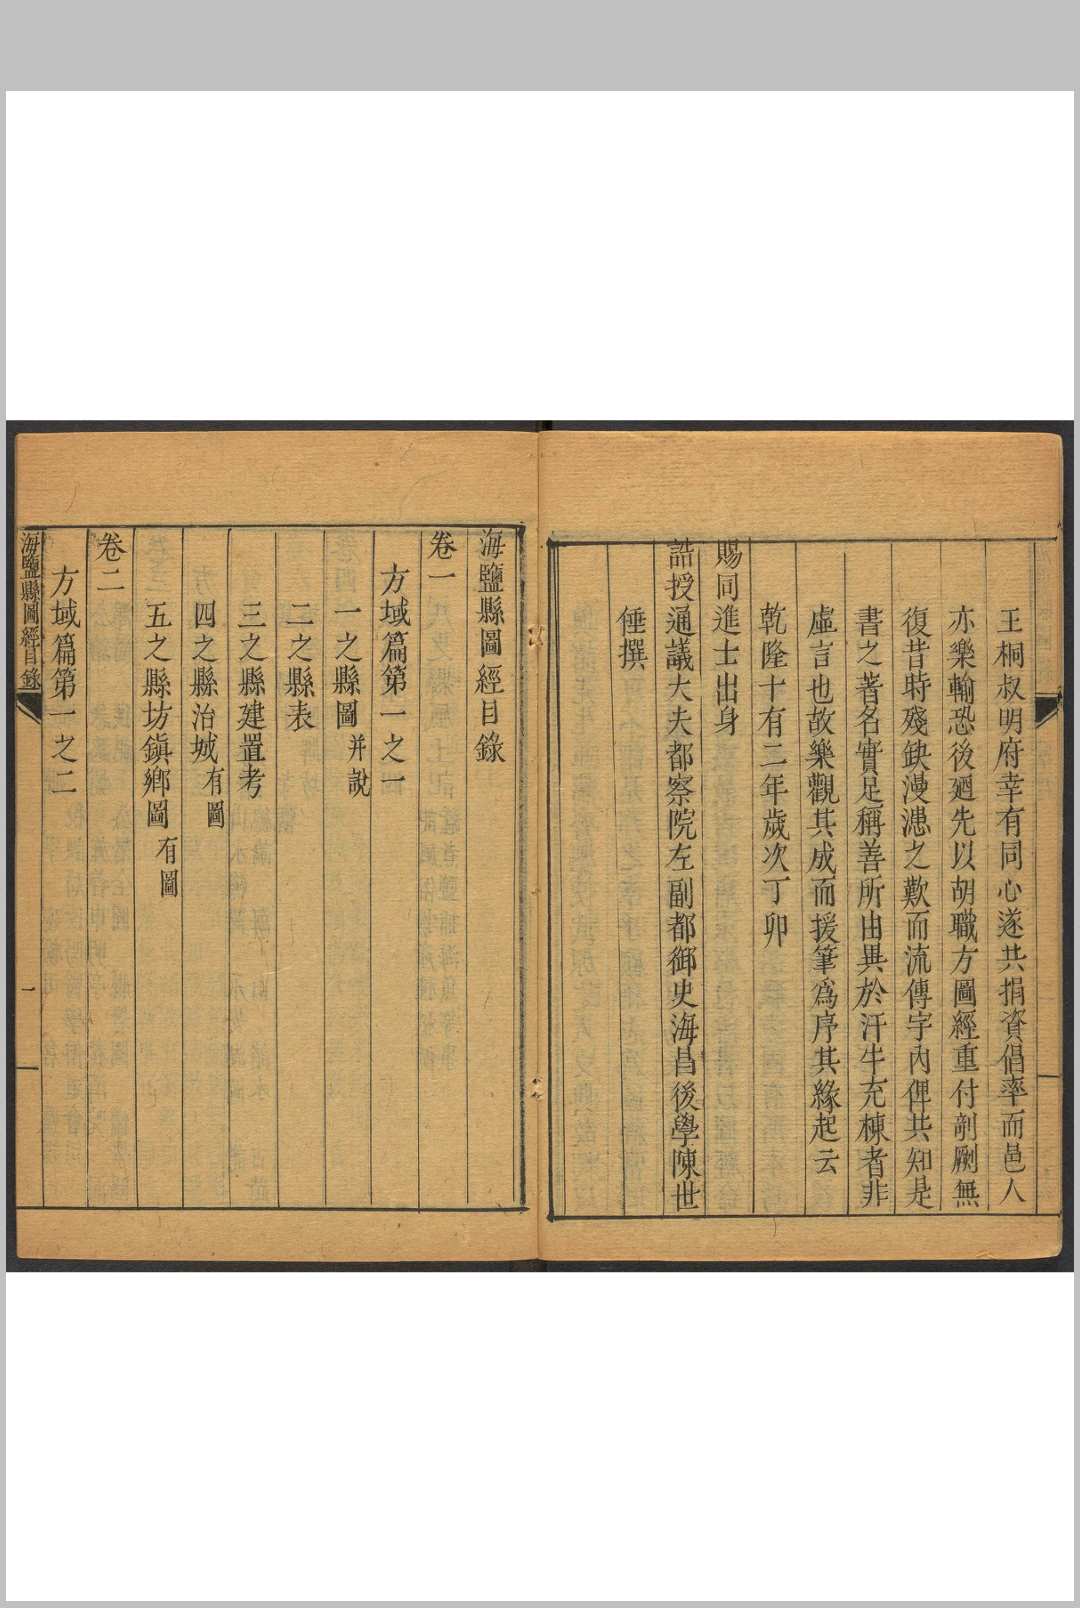 王桐叔明府幸有同心遂共捐資倡率而邑人
亦樂輸恐後廼先以胡職方圖經重付剞劂無
復昔時殘缺漫漶之歎而流傳宇內俾共知是
書之著名實足稱善所由異於汗牛充棟者非
虛言也故樂觀其成而援筆爲序其緣起云
乾隆十有二年歲次丁卯
賜同進士出身
誥授通議大夫都察院左副都御史海昌後學陳世
倕撰
海鹽縣圖經目錄
卷一
方域篇第一之一
一之縣圖 并說
二之縣表
三之縣建置考
四之縣治城 有圖
五之縣坊鎮鄉圖 有圖
卷二
方域篇第一之二
海鹽縣圖經目錄 一